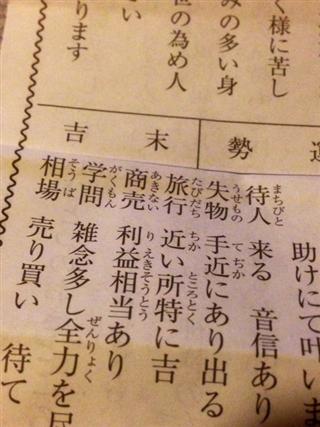 く様に苦し
みの多い身
世の為め人
い
ります
運勢 末吉
助けにて叶いま
まちびと
待人 来る 音信あり
うせもの てぢか
失物 手近にあり出る
たびだち ちか ところとく
旅行 近い所特に吉
あきない りえきそうとう
商売 利益相当あり
がくもん ぜんりょく
学問 雑念多し全力を
そうば
相場 売り買い 待て